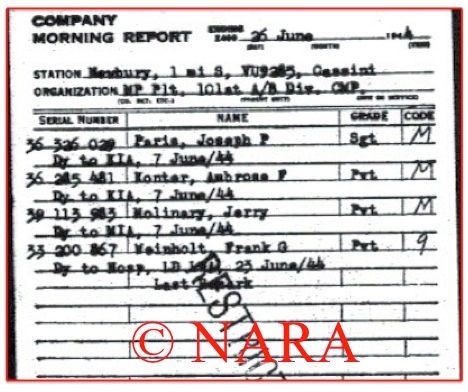 COMPANY
MORNING REPORT ENDING 2400 26 June 1944
(DAY) (MONTH) (YEAR)
STATION Newbury, 1 mi S, VU9285, Cassini
ORGANIZATION MP Plt, 101st A/B Div, CMP
SERIAL NUMBER NAME GRADE CODE
36 326 029 Paris, Joseph P Sgt M
Dy to KIA, 7 June/44
36 285 481 Konter, Ambrose F Pvt M
Dy to KIA, 7 June/44
39 113 983 Molinary, Jerry Pvt M
Dy to MIA, 7 June/44
33 200 867 Weinholt, Frank G Pvt 9
Dy to Hosp, LD 23 June/44
Last Remark
© NARA